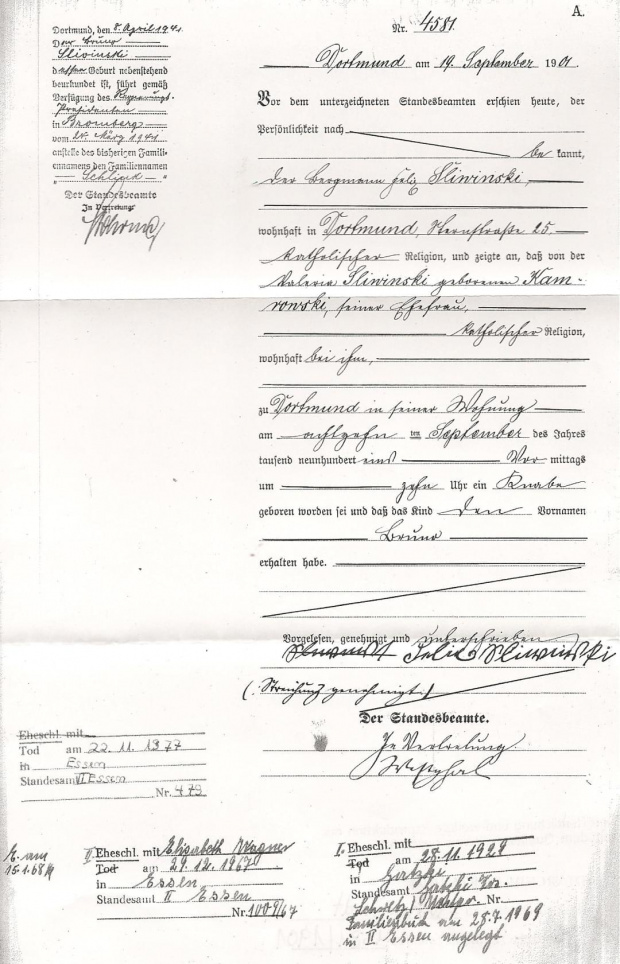 A.
Nr. 4581.
Dortmund am 19. September 1901.
Vor dem unterzeichneten Standesbeamten erschien heute, der
Persönlichkeit nach
be kannt,
der Bergmann Felix Sliwinski,
wohnhaft in Dortmund, Sternstraße 25.
katholischer Religion, und zeigte an, daß von der
Valeria Sliwinski geborenen Kam-
rowski, seiner Ehefrau,
katholischer Religion,
wohnhaft bei ihm,
zu Dortmund in seiner Wohnung
am achtzehn ten September des Jahres
tausend neunhundert eins Vor mittags
um zehn Uhr ein Knabe
geboren worden sei und daß das Kind den Vornamen
Bruno
erhalten habe.
Vorgelesen, genehmigt und unterschrieben
Felix Sliwinski
(: Streichung genehmigt)
Der Standesbeamte.
In Vertretung
Westphal
Dortmund, den 8. April 1941.
Der Bruno
Sliwinski
dessen Geburt nebenstehend
beurkundet ist, führt gemäß
Verfügung des Regierungs-
Präsidenten
in Bromberg
vom 24. März 1941
anstelle des bisherigen Famili-
ennamens den Familiennamen
"Schlink"
Der Standesbeamte
In Vertretung
Eheschl. mit
Tod am 22.11.1977
in Essen
Standesamt II Essen
Nr. 473
E. am
15.1.68
II Eheschl. mit Elisabeth Wagner
Tod am 29.12.1967
in Essen
Standesamt II Essen
Nr. 1009/67
I. Eheschl. mit
Tod am 28.11.1929
in
Standesamt
Nr.
Familienbuch am 28.7.1969
in II Essen angelegt